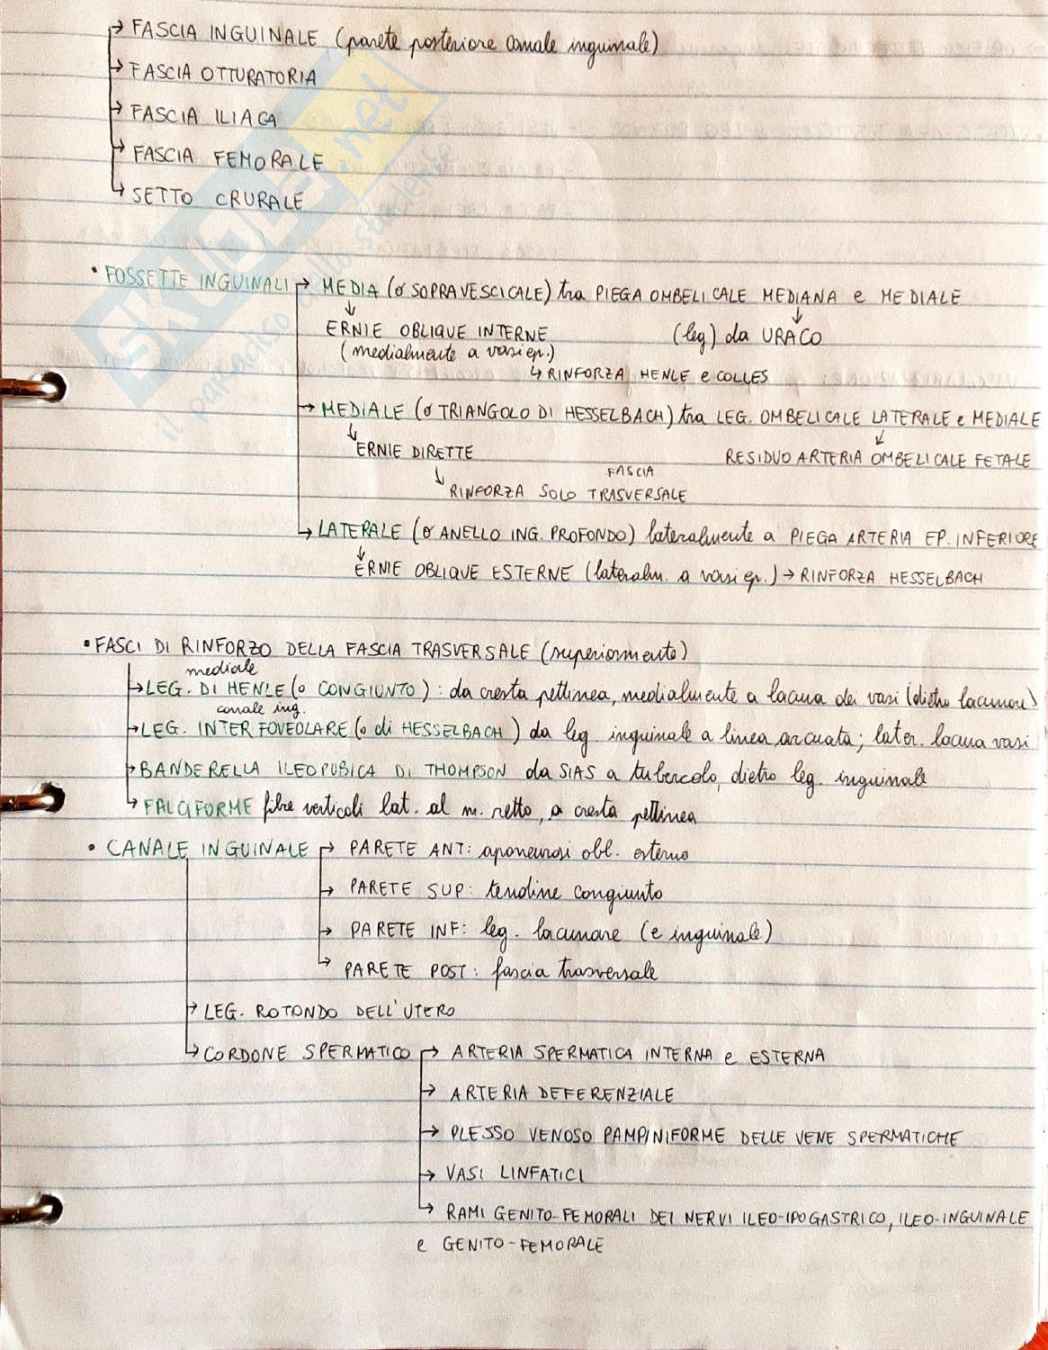 → FASCIA INGUINALE (parete posteriore canale inguinale)
→ FASCIA OTTURATORIA
→ FASCIA ILIACA
→ FASCIA FEMORALE
→ SETTO CRURALE
SKUOLA.net
il paradiso dello studente
• FOSSETTE INGUINALI → MEDIA (o SOPRAVESCICALE) tra PIEGA OMBELICALE MEDIANA e MEDIALE
↓ ERNIE OBLIQUE INTERNE ↓ (leg) da URACO
(medialmente a vasi ep.)
↳ RINFORZA HENLE e COLLES
→ MEDIALE (o TRIANGOLO DI HESSELBACH) tra LEG. OMBELICALE LATERALE e MEDIALE
↓ ERNIE DIRETTE ↓ RESIDUO ARTERIA OMBELICALE FETALE
FASCIA
↓ RINFORZA SOLO TRASVERSALE
→ LATERALE (o ANELLO ING. PROFONDO) lateralmente a PIEGA ARTERIA EP. INFERIORE
↓ ERNIE OBLIQUE ESTERNE (lateralm. a vasi ep.) → RINFORZA HESSELBACH
• FASCI DI RINFORZO DELLA FASCIA TRASVERSALE (superiormente)
mediale
→ LEG. DI HENLE (o CONGIUNTO): da cresta pettinea, medialmente a lacuna dei vasi (dietro lacunare)
canale ing.
→ LEG. INTERFOVEOLARE (o di HESSELBACH) da leg. inguinale a linea arcuata; later. lacuna vasi
→ BANDERELLA ILEOPUBICA DI THOMPSON da SIAS a tubercolo, dietro leg. inguinale
→ FALCIFORME fibre verticali lat. al m. retto, a cresta pettinea
• CANALE INGUINALE → PARETE ANT: aponeurosi obl. esterno
→ PARETE SUP: tendine congiunto
→ PARETE INF: leg. lacunare (e inguinale)
→ PARETE POST: fascia trasversale
→ LEG. ROTONDO DELL'UTERO
→ CORDONE SPERMATICO → ARTERIA SPERMATICA INTERNA e ESTERNA
→ ARTERIA DEFERENZIALE
→ PLESSO VENOSO PAMPINIFORME DELLE VENE SPERMATICHE
→ VASI LINFATICI
→ RAMI GENITO-FEMORALI DEI NERVI ILEO-IPOGASTRICO, ILEO-INGUINALE
e GENITO-FEMORALE